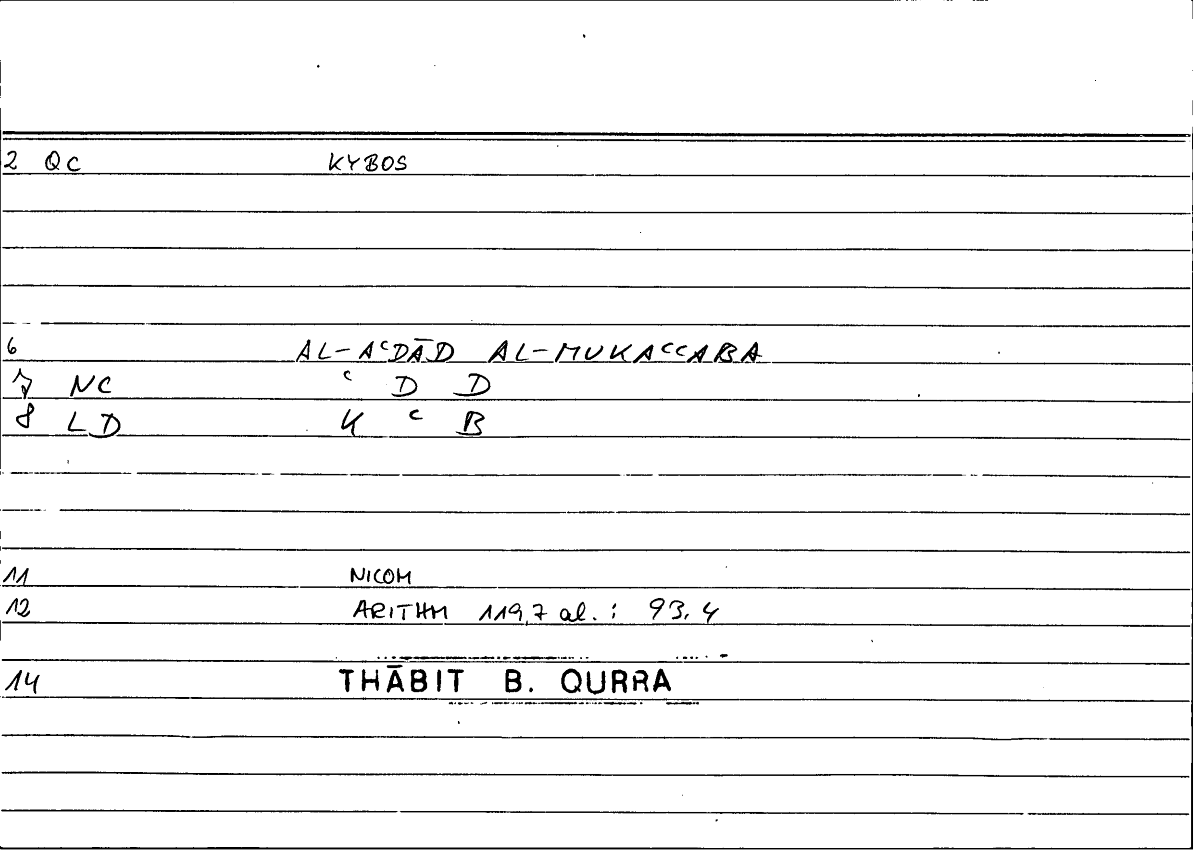 2 QC KYBOS
6 AL-AᶜDĀD AL-MUKAᶜᶜABA
7 NC ᶜ D D
8 LD K ᶜ B
11 NICOM
12 ARITHM 119,7 al. : 93,4
14 THĀBIT B. QURRA